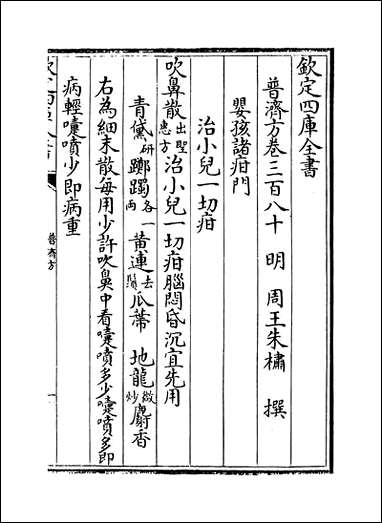 欽定四庫全書
普濟方卷三百八十　明　周王朱橚　撰
嬰孩諸疳門
治小兒一切疳
吹鼻散出聖惠方治小兒一切疳腦悶昏沉宜先用
青黛研躑躅各一兩黃連去鬚瓜蒂　地龍微炒麝香
右為細末散每用少許吹鼻中看嚏噴多少嚏噴多即
病輕嚏噴少即病重
普濟方